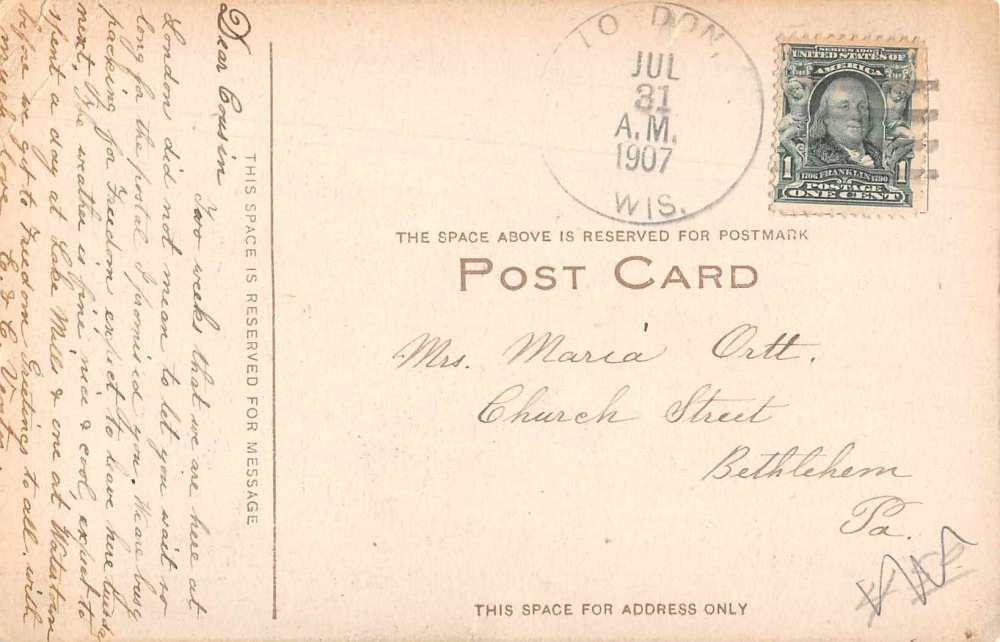 Dear Cousin
Two weeks that we are here at
London did not mean to let you wait so
long for the postal I promised you. We are busy
packing for Freedom expect to leave here
next. The weather is fine nice & cool, expect to
spent a day at Lake Mills & one at Watertown
before we get to Freedom Greetings to all. with
much love E. & C.
THIS SPACE IS RESERVED FOR MESSAGE
DON,
JUL
31
A.M.
1907
WIS.
SERIES 1902
UNITED STATES OF
AMERICA
1 1
1706 FRANKLIN 1790
POSTAGE
ONE CENT
THE SPACE ABOVE IS RESERVED FOR POSTMARK
POST CARD
Mrs. Maria Ortt.
Church Street
Bethlehem
Pa.
THIS SPACE FOR ADDRESS ONLY